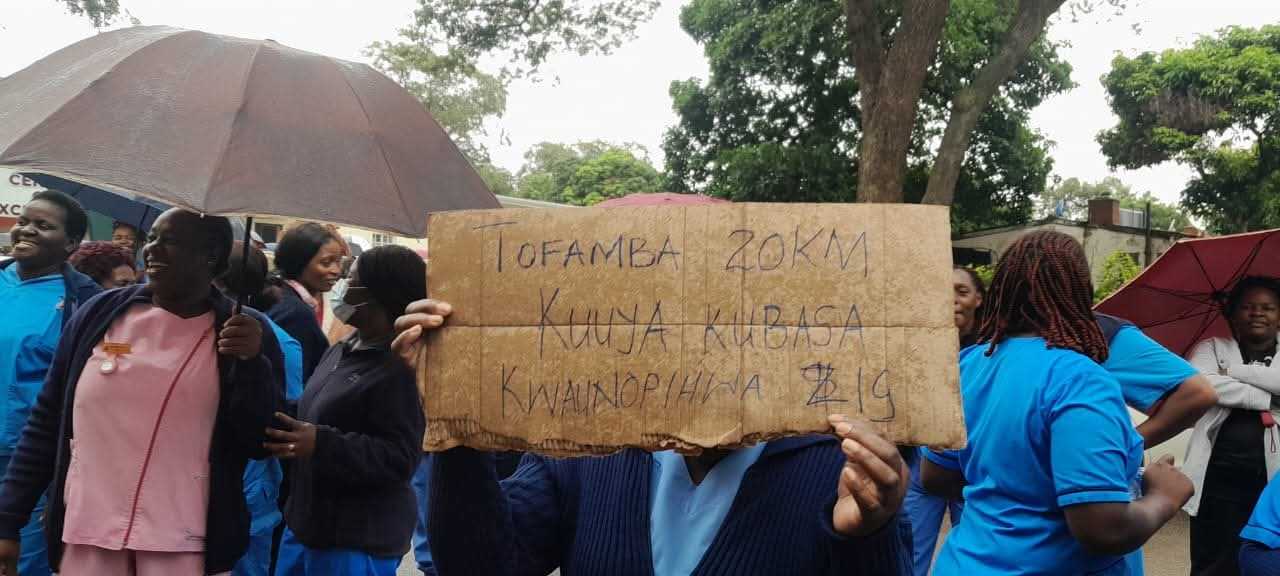 TOFAMBA 20KM
KUUYA KUBASA
KWAUNOPIHWA ZIg